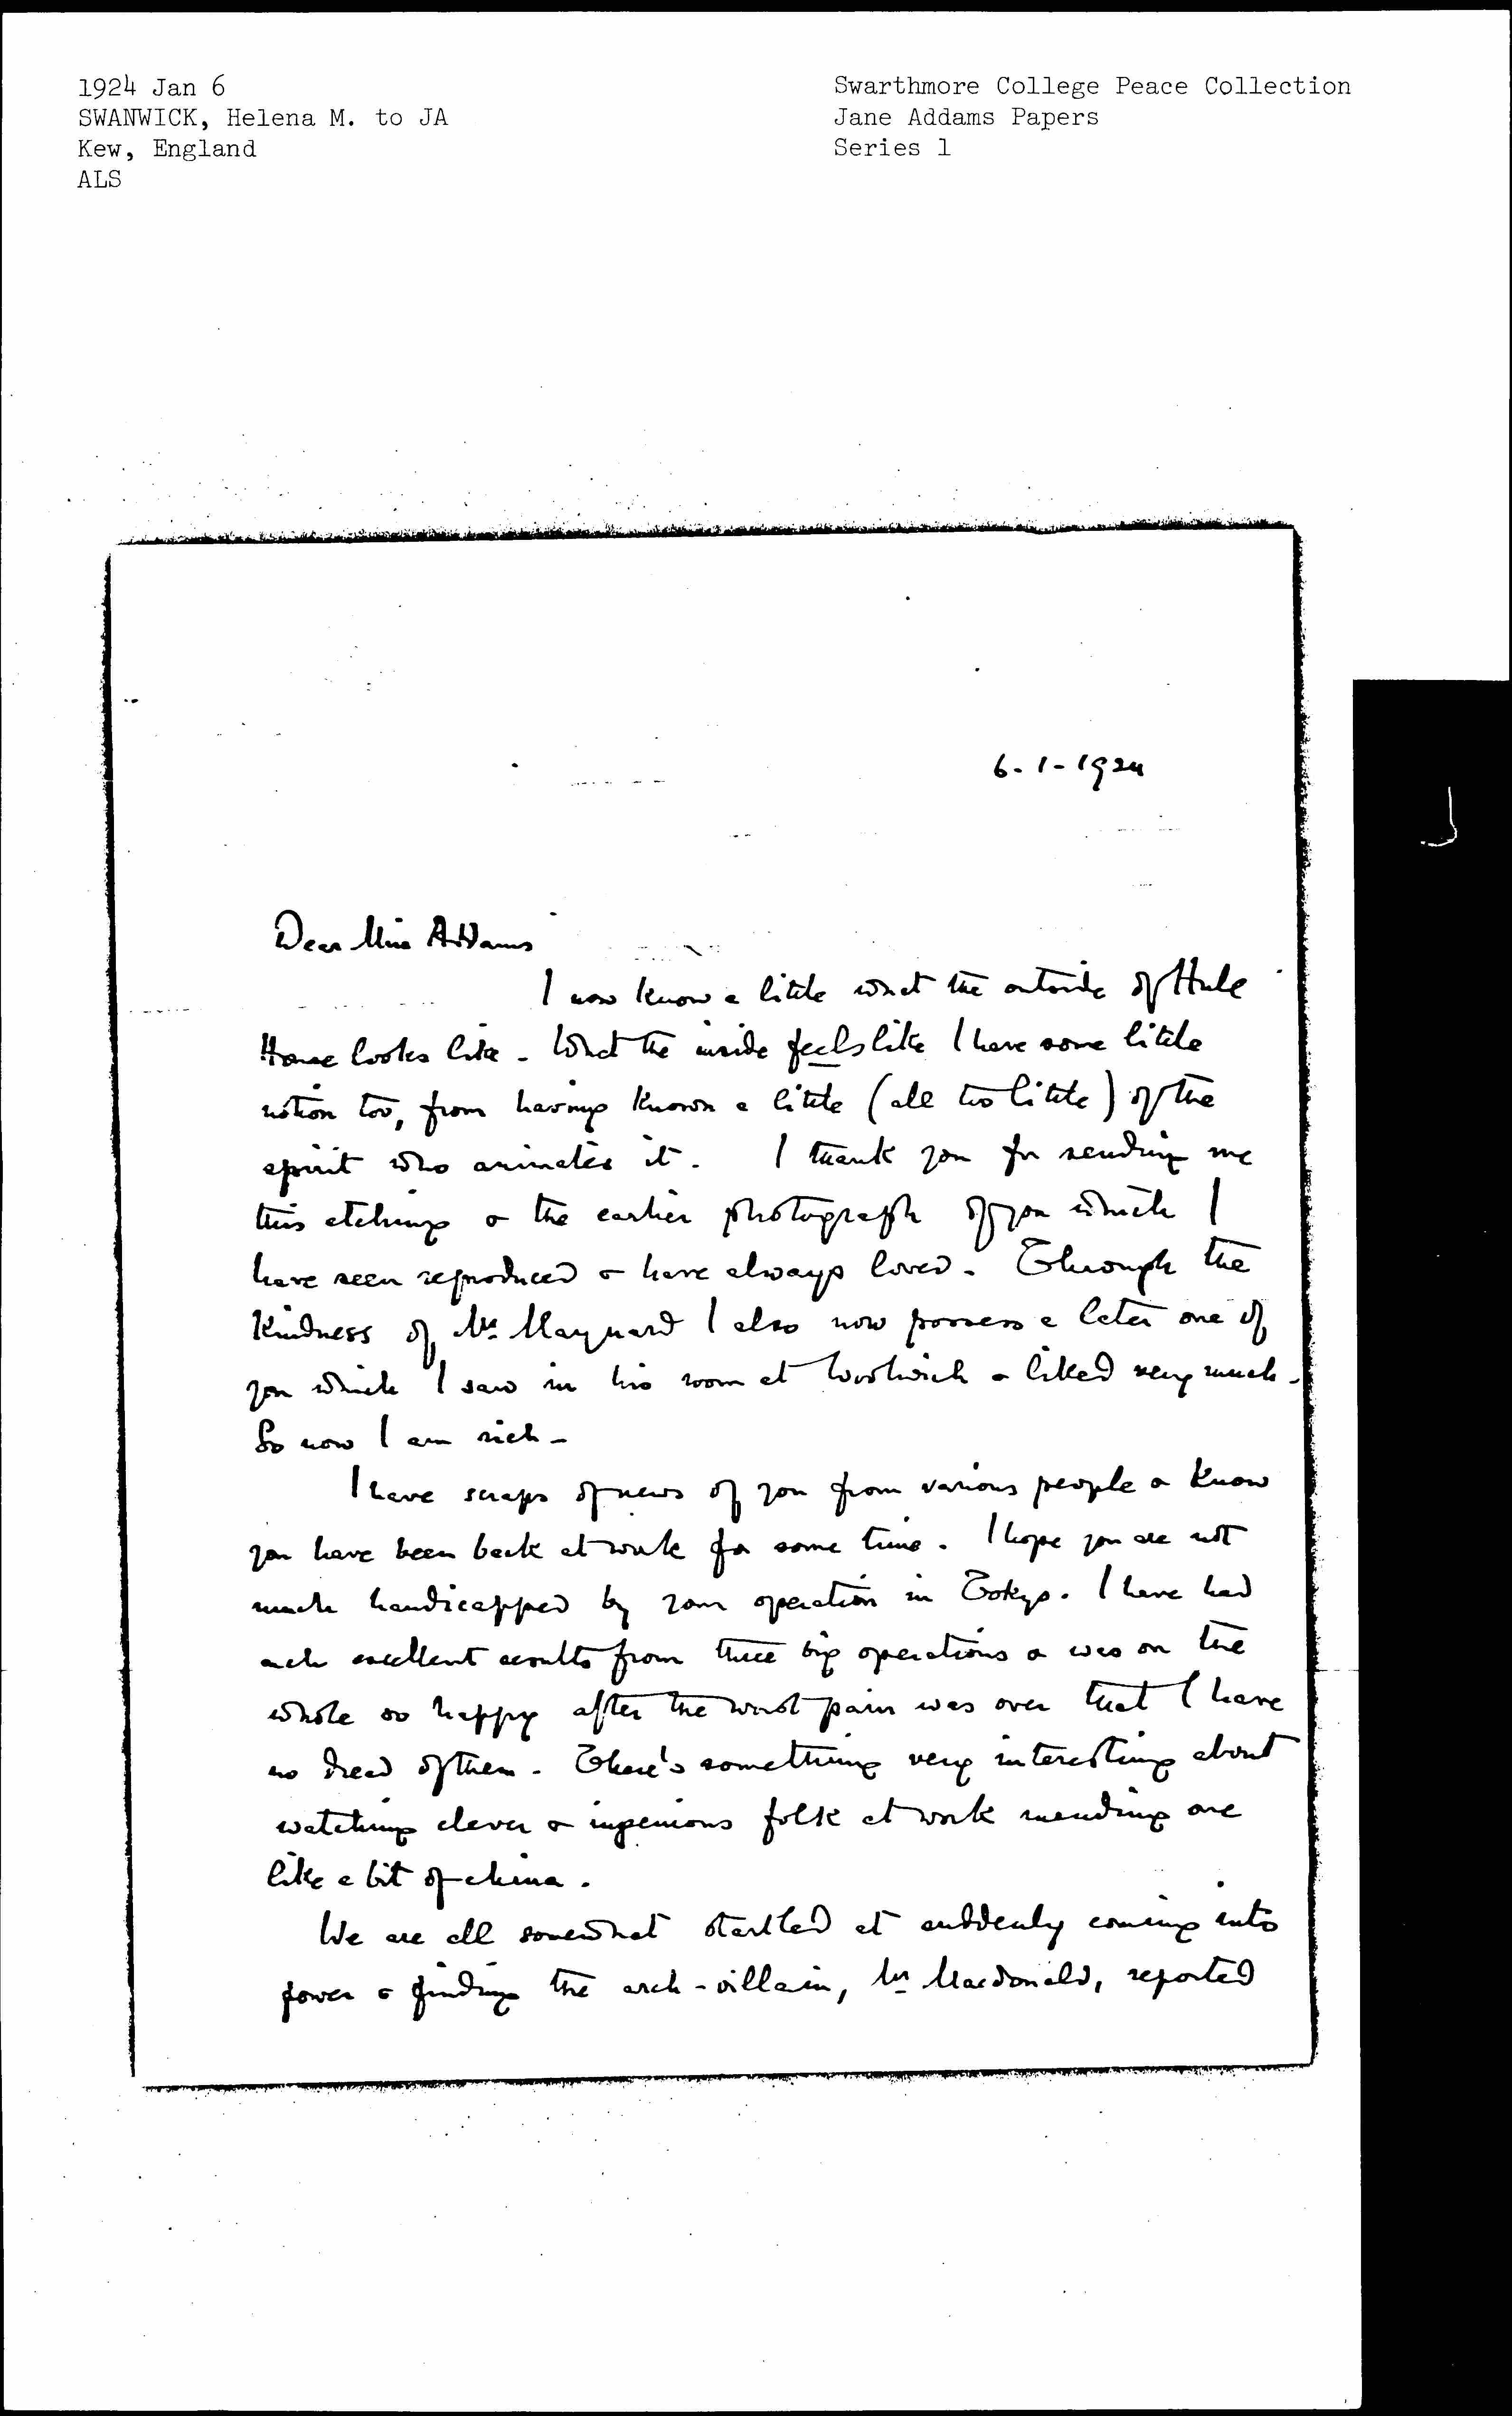 1924 Jan 6
SWANWICK, Helena M. to JA
Kew, England
ALS
Swarthmore College Peace Collection
Jane Addams Papers
Series 1
6-1-1924
Dear Miss Addams
I now know a little what the outside of Hull
House looks like - What the inside feels like I have some little
notion too, from having known a little (all too little) of the
spirit who animates it. I thank you for sending me
this etching & the earlier photograph of you which I
have seen reproduced & have always loved. Through the
kindness of Mr Maynard I also now possess a later one of
you which I saw in his room at Woolwich & liked very much -
So now I am rich -
I have scraps of news of you from various people & know
you have been back at work for some time. I hope you are not
much handicapped by your operation in Tokyo. I have had
such excellent results from three big operations & was on the
whole so happy after the worst pain was over that I have
no dread of them. There's something very interesting about
watching clever & ingenious folk at work mending one
like a bit of china.
We are all somewhat startled at suddenly coming into
power & finding the arch-villain, Mr Macdonald, reported